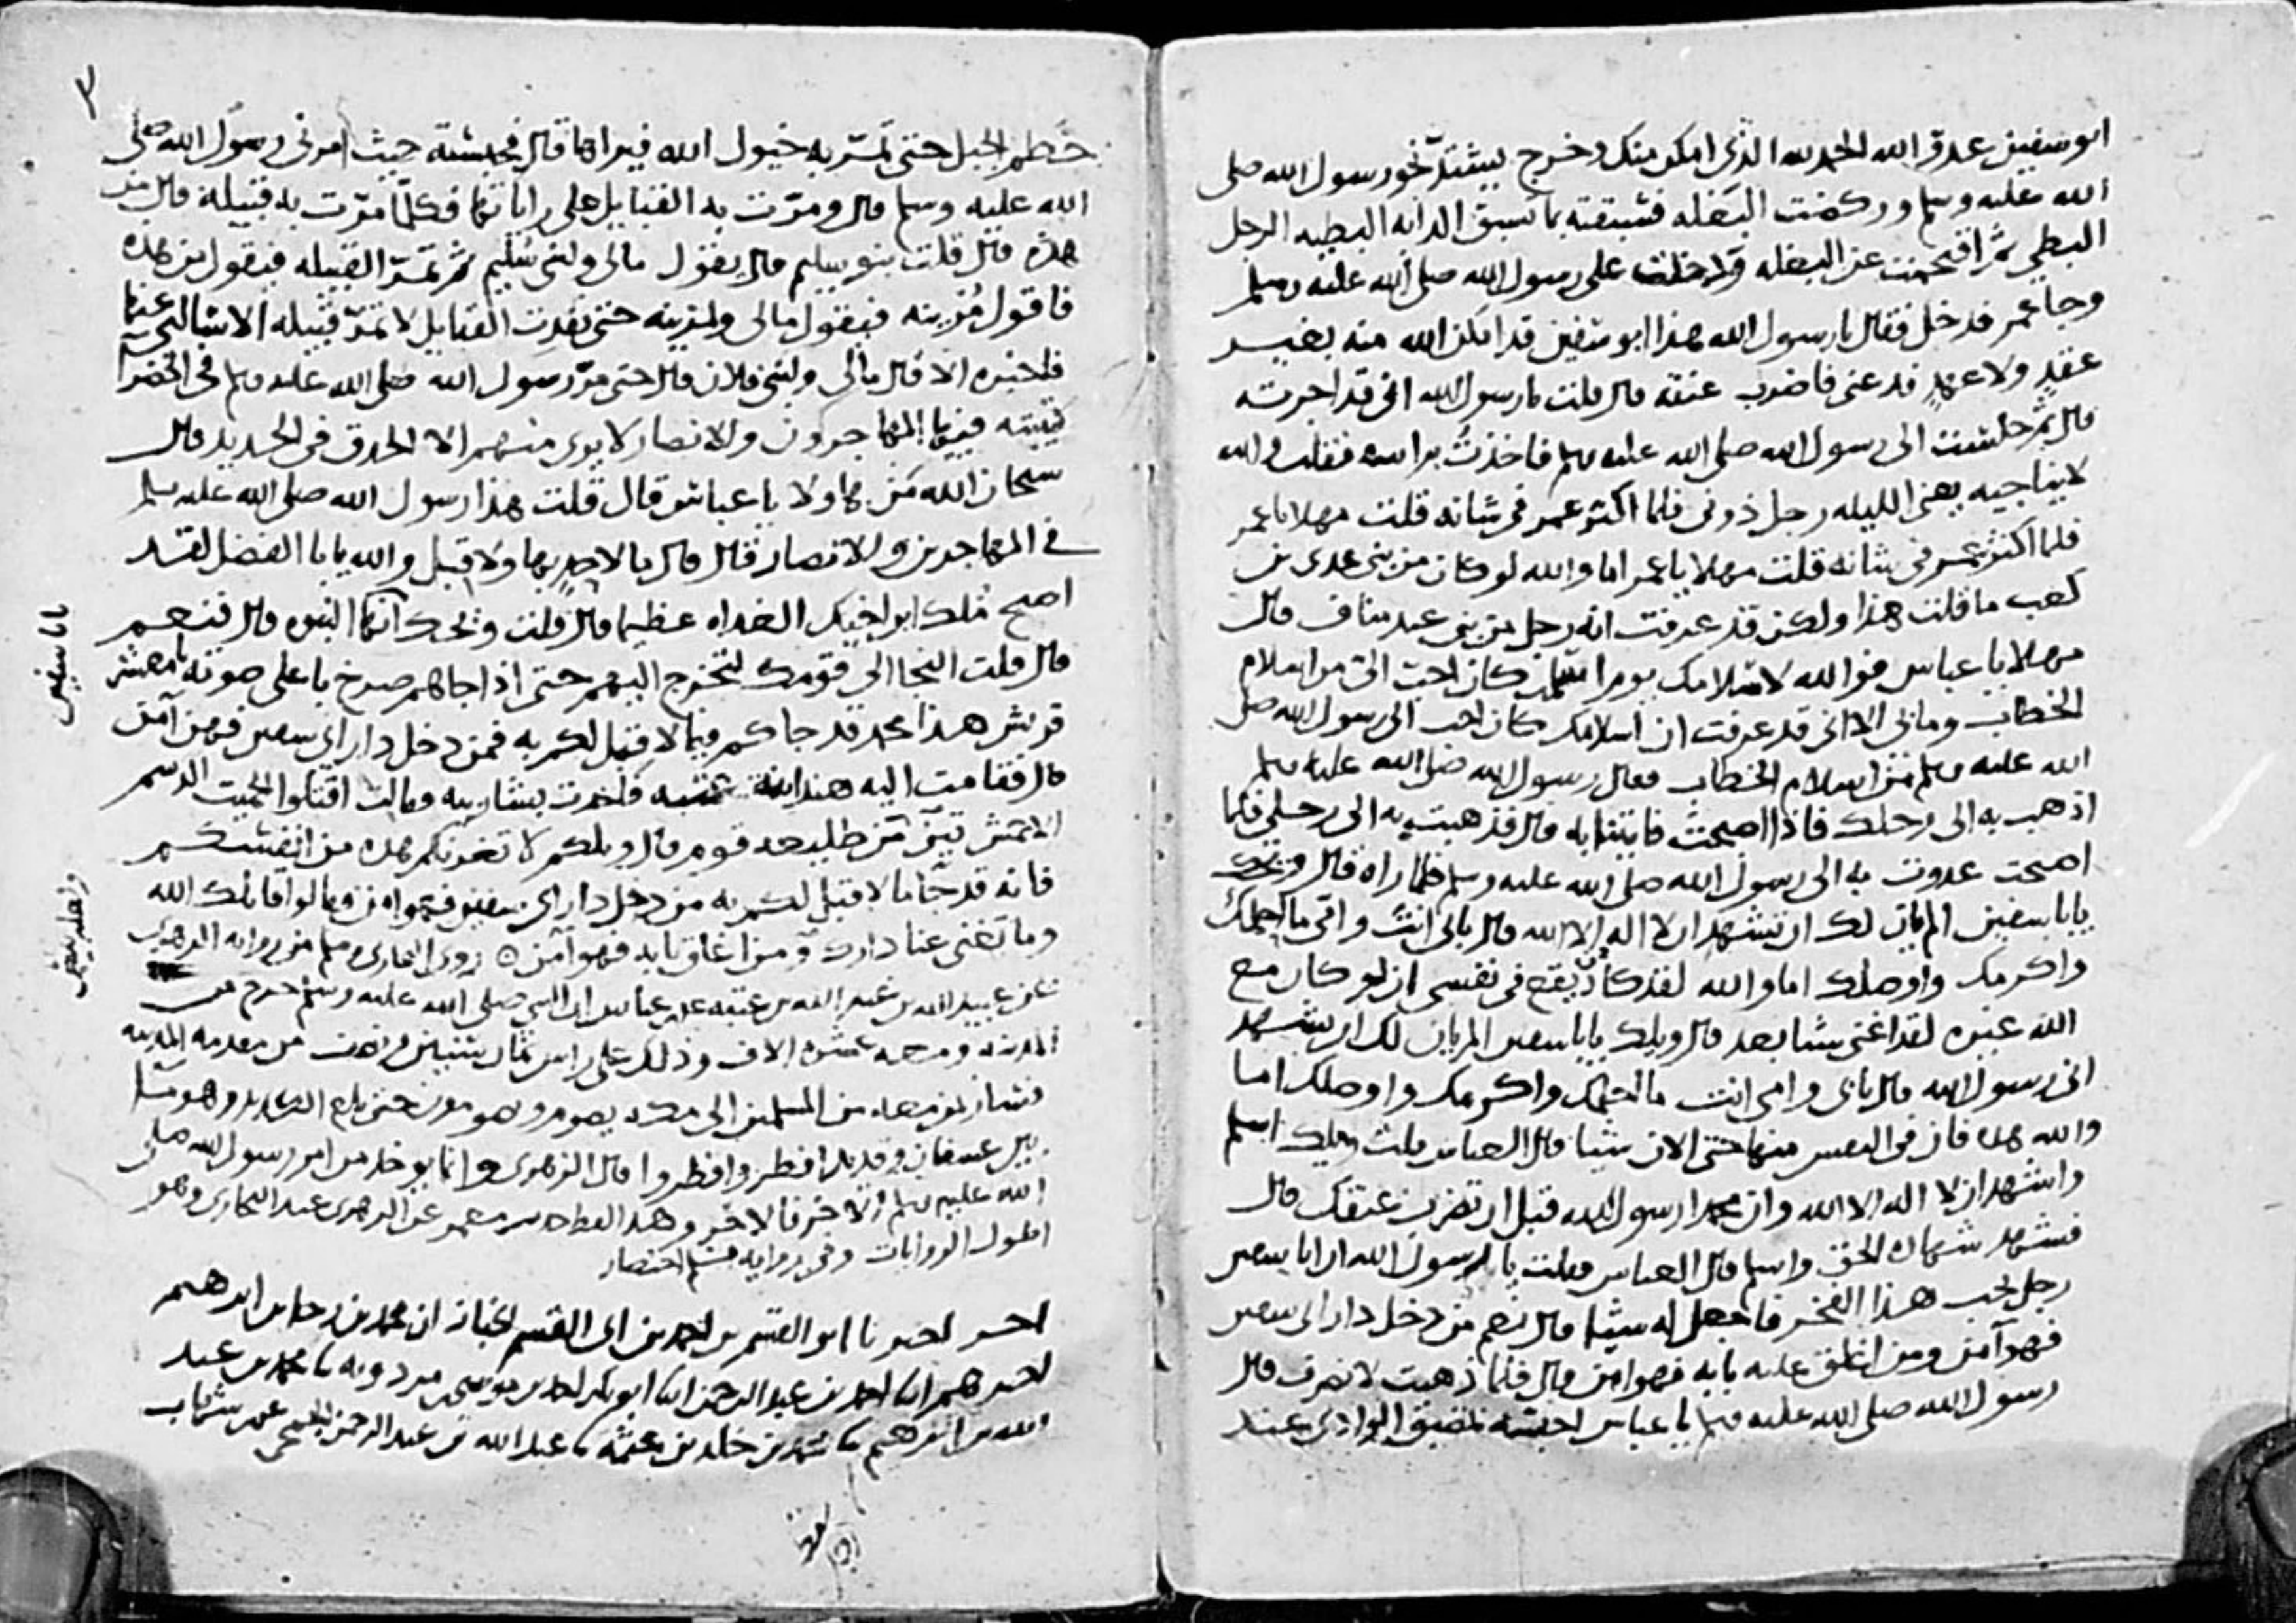 ابو سفين عدو الله الحمد لله الذي امكن منك وخرج يشتد نحو رسول الله صلى
الله عليه وسلم وركضت البغله فسبقته بما تسبق الدابه البطيه الرجل
البطي ثم اقتحمت عن البغله ودخلت على رسول الله صلى الله عليه وسلم
وجا عمر فدخل فقال يا رسول الله هذا ابو سفين قد امكن الله منه بغير
عقد ولا عهد فدعني فاضرب عنقه قال قلت يا رسول الله اني قد اجرته
قال ثم جلست الى رسول الله صلى الله عليه وسلم فاخذت براسه فقلت والله
لا يناجيه يعني الليله رجل دوني فلما اكثر عمر في شانه قلت مهلا يا عمر
فلما اكثر عمر في شانه قلت مهلا يا عمر اما والله لو كان من بني عدي بن
كعب ما قلت هذا ولكن قد عرفت انه رجل من بني عبد مناف قال
مهلا يا عباس فوالله لاسلامك يوم اسلمت كان احب الي من اسلام
الخطاب وما بي الا اني قد عرفت ان اسلامك كان احب الى رسول الله صلى
الله عليه وسلم من اسلام الخطاب فقال رسول الله صلى الله عليه وسلم
اذهب به الى رحلك فاذا اصبحت فاتنا به قال فذهبت به الى رحلي فلما
اصبحت غدوت به الى رسول الله صلى الله عليه وسلم فلما راه قال ويحك
يا با سفين الم يان لك ان تشهد ان لا اله الا الله قال بابي انت وامي ما احلمك
واكرمك واوصلك اما والله لقد كاد يقع في نفسي ان لو كان مع
الله غيره لقد اغنى شيا بعد قال ويلك يا با سفين الم يان لك ان تشهد
اني رسول الله قال بابي وامي انت ما احلمك واكرمك واوصلك اما
والله هذه فان في النفس منها حتى الان شيا قال العباس قلت ويلك اسلم
واشهد ان لا اله الا الله وان محمدا رسول الله قبل ان تضرب عنقك قال
فشهد شهادة الحق واسلم قال العباس فقلت يا رسول الله ان ابا سفين
رجل يحب هذا الفخر فاجعل له شيا قال نعم من دخل دار ابي سفين
فهو آمن ومن اغلق عليه بابه فهو امن قال فلما ذهبت لانصرف قال
رسول الله صلى الله عليه وسلم يا عباس احبسه بمضيق الوادي عند
٣
خطم الجبل حتى تمر به خيول الله فيراها قال فحبسته حيث امرني رسول الله صلى
الله عليه وسلم قال ومرت به القبايل على راياتها فكلما مرت به قبيلة قال من
هذه قال قلت بنو سليم قال يقول مالي ولبني سليم ثم تمر القبيله فيقول من هذه
فاقول مزينه فيقول مالي ولمزينه حتى نفدت القبايل لا تمر قبيله الا سالني عنها
فاخبره الا قال مالي ولبني فلان قال حتى مر رسول الله صلى الله عليه وسلم في الخضرا
كتيبته فيها المهاجرون والانصار لا يرى منهم الا الحدق في الحديد قال
سبحان الله من هاولا يا عباس قال قلت هذا رسول الله صلى الله عليه وسلم
في المهاجرين والانصار قال قال ما لاحد بهاولا قبل والله يا با الفضل لقد
اصبح ملك ابن اخيك الغداه عظيما قال قلت ويحك انها النبوه قال فنعم
يا با سفين
قال قلت النجا الى قومك لتخرج اليهم حتى اذا جاهم صرخ باعلى صوته يا معشر
قريش هذا محمد قد جاكم فيما لا قبل لكم به فمن دخل دار ابي سفين فهو امن
قال فقامت اليه هند ابنة عتبه فاخذت بشاربه وقالت اقتلوا الحميت الدسم
الاحمش قبح من طليعه قوم قال ويلكم لا تغرنكم هذه من انفسكم
فانه قد جا ما لا قبل لكم به من دخل دار ابي سفين فهو امن قالوا قاتلك الله
وما تغني عنا دارك قال ومن اغلق بابه فهو آمن ۝ روى البخاري ومسلم من روايه الزهري
عن عبيد الله بن عبد الله بن عتبه عن ابن عباس ان النبي صلى الله عليه وسلم خرج من
المدينه ومعه عشره الاف وذلك على راس ثمان سنين ونصف من مقدمه المدينه
فسار بمن معه من المسلمين الى مكه يصوم ويصومون حتى بلغ الكديد وهو ما
بين عسفان وقديد افطر وافطروا قال الزهري وانما يوخذ من امر رسول الله صلى
الله عليه وسلم الاخر فالاخر وهذا لفظ معمر عن الزهري عند البخاري وهو
اطول الروايات وفي روايه مسلم اختصار
احمد بن ابي القسم الخباز ان محمد بن رجا بن ابرهيم
اخبرهم ابنا احمد بن عبد الرحمن ابنا ابو بكر احمد بن موسى بن مردويه نا محمد بن عبد
الله بن ابرهيم نا محمد بن خالد بن عثمه نا عبد الله بن عبد الرحمن الجمحي عن ابن شهاب